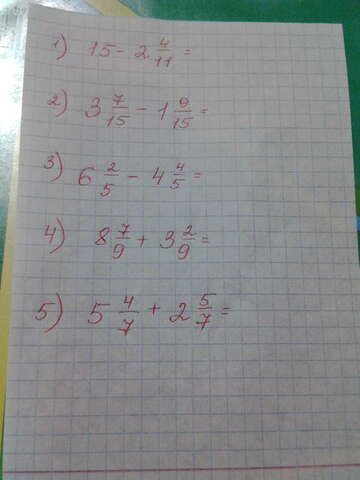 1) 15 - 2 4/11 =
2) 3 7/15 - 1 9/15 =
3) 6 2/5 - 4 4/5 =
4) 8 7/9 + 3 2/9 =
5) 5 4/7 + 2 5/7 =